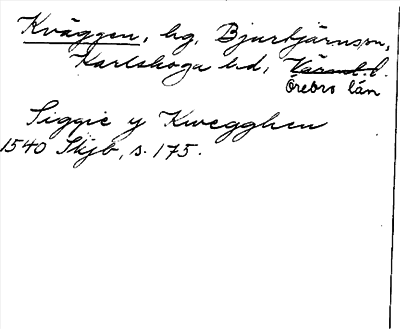 Kväggen, hg, Bjurtjärns sn,
Karlskoga hd, Värml. l.
Örebro län
Siggie y Kwegghen
1540 Skjb, s. 175.